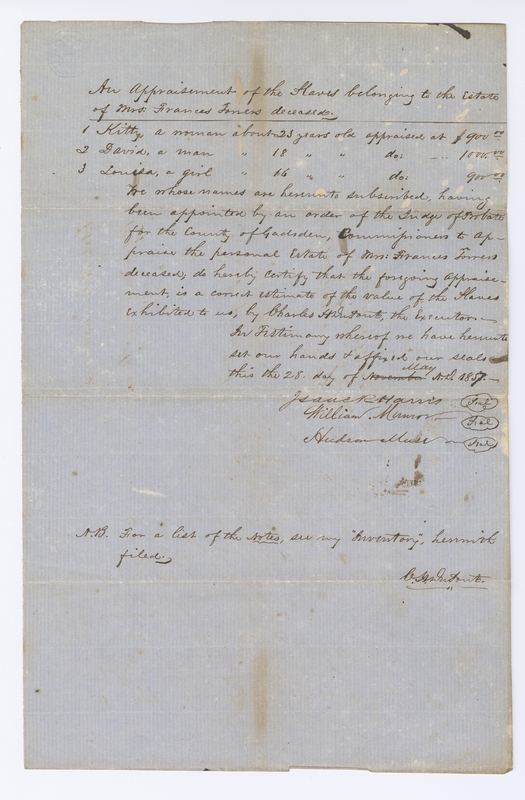 An Appraisement of the Slaves belonging to the Estate
of Mrs. Frances Forrers deceased.
1 Kitty, a woman about 23 years old appraised at $900.00
2 David, a man " 18 " " do: ... 1000.00
3 Louisa, a girl " 16 " " do: 900.00
We whose names are hereunto subscribed, having
been appointed by an order of the Judge of Probate
for the County of Gadsden, Commissioners to Ap-
praise the personal Estate of Mrs: Frances Forrers
deceased, do hereby certify that the foregoing Appraise-
ment, is a correct estimate of the value of the Slaves
exhibited to us, by Charles H. DuPont, the Executor.
In Testimony whereof we have hereunto
set our hands & affixed our seals
this the 28. day of November May A.D. 1857.
Isaac R Harris Seal
William Munroe Seal
Hudson Muse Seal
N.B. For a list of the Notes, see my "Inventory", herewith
filed.
C. H. DuPont.